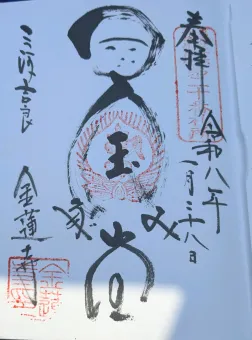 奉拝
令和八年
一月二十八日
玉
みだ堂
三河吉良
金蓮寺